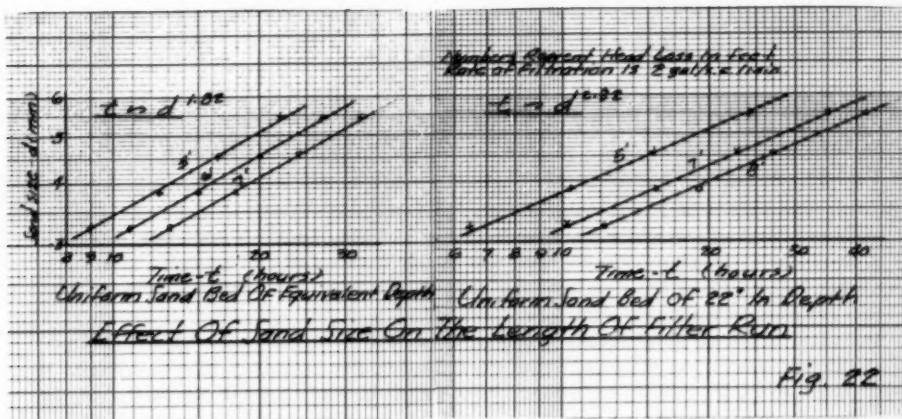 Numbers Represent Head Loss In Feet
Rate of Filtration is 2 gal/s.f./min.
t ~ d^1.82
t ~ d^2.32
Sand size - d (mm)
.6
.5
.4
.3
5'
7'
5'
7'
8'
8 9 10 20 30
6 7 8 9 10 20 30 40
Time - t (hours)
Time - t (hours)
Uniform Sand Bed Of Equivalent Depth
Uniform Sand Bed Of 22" In Depth
Effect Of Sand Size On The Length Of Filter Run
Fig. 22